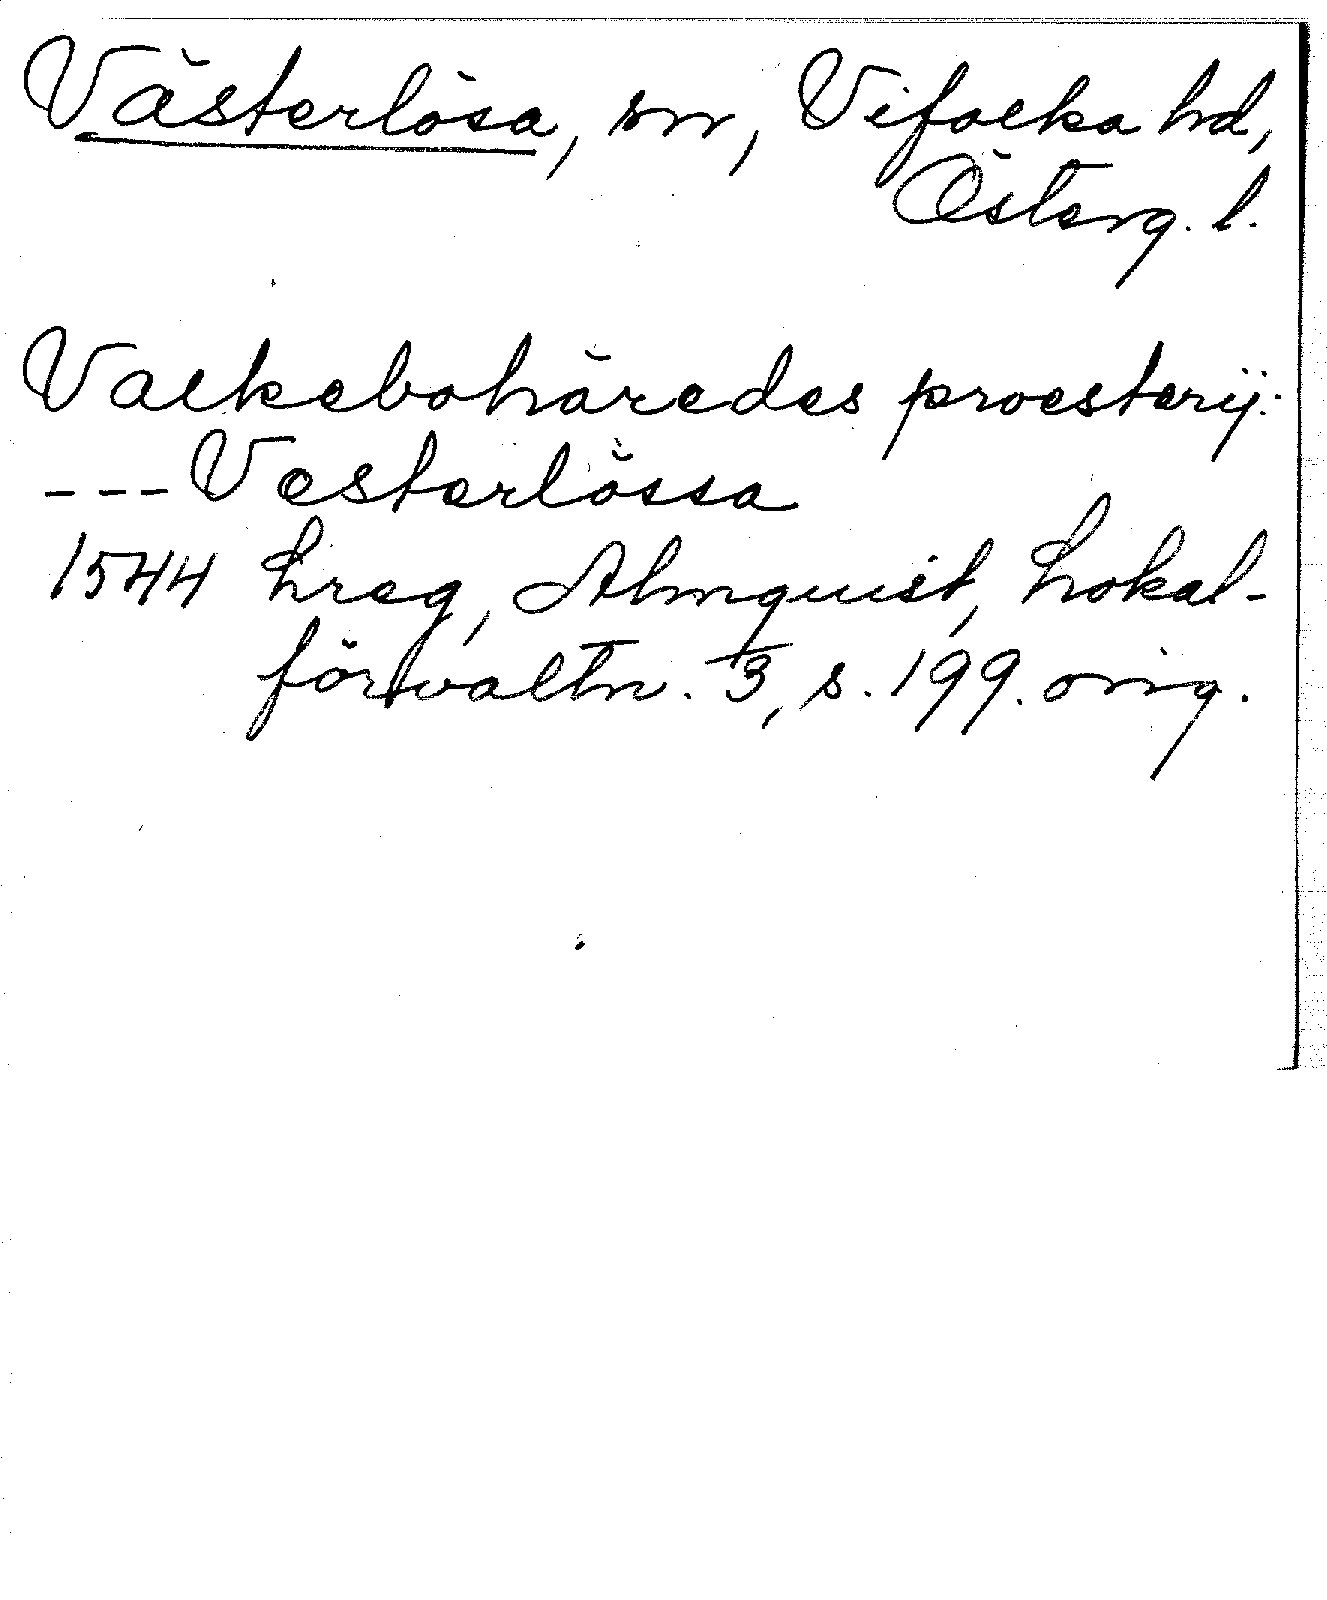 Västerlösa, sn, Vifolka hd,
Österg. l.
Valkebohäredes proesterij:
--- Vesterlössa
1544 Lreg, Almquist, Lokal-
förvaltn. 3, s. 199. orig.